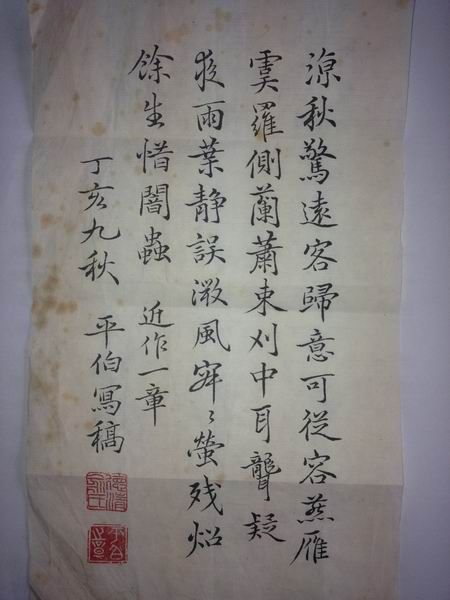 涼秋驚遠客歸意可從容燕雁
虞羅側蘭蕭束刈中耳聾疑
夜雨葉靜誤微風寂〻螢殘炤
餘生惜闇蟲 近作一章
丁亥九秋 平伯寫稿
德清俞氏